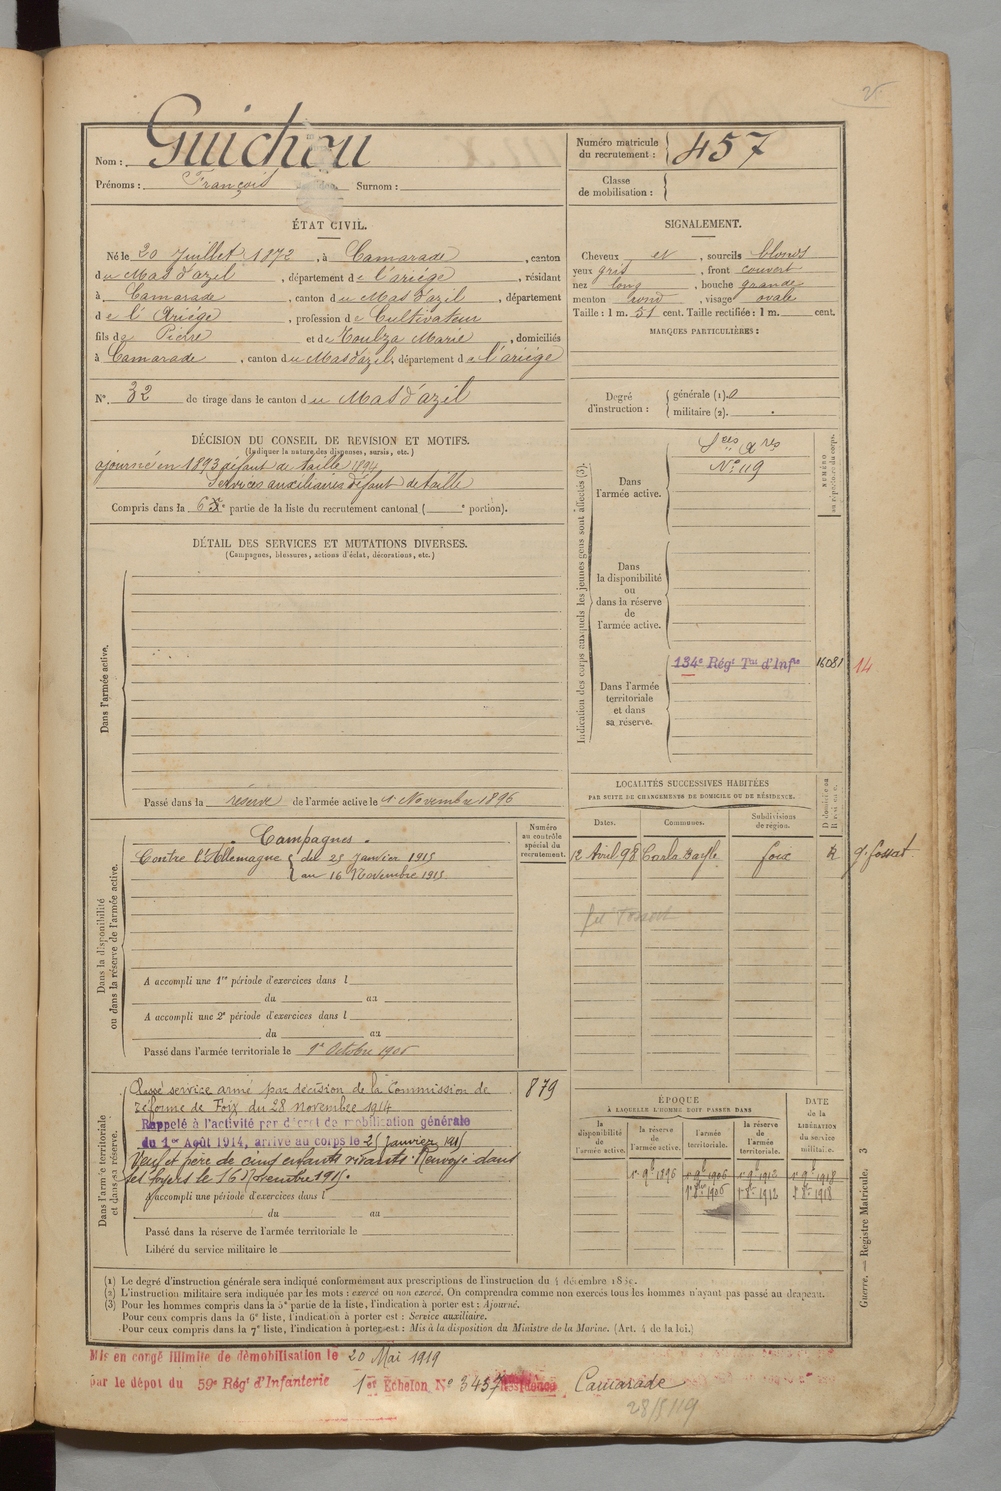 Nom : Guichou
Prénoms : François Surnom :
Numéro matricule du recrutement : 457
Classe de mobilisation :
ÉTAT CIVIL.
Né le 20 Juillet 1872, à Camarade, canton
du Mas d'azil, département de l'ariége, résidant
à Camarade, canton du Mas d'azil, département
de l'Ariége, profession de Cultivateur
fils de Piérre et de Toulza Marie, domiciliés
à Camarade, canton du Mas d'azil, département de l'ariége
N°. 32 de tirage dans le canton du Mas d'azil
SIGNALEMENT.
Cheveux et, sourcils blonds
yeux gris, front couvert
nez long, bouche grande
menton rond, visage ovale
Taille : 1 m. 51 cent. Taille rectifiée : 1 m. cent.
MARQUES PARTICULIÈRES :
Degré d'instruction : générale (1). 0
militaire (2).
DÉCISION DU CONSEIL DE REVISION ET MOTIFS.
(Indiquer la nature des dispenses, sursis, etc.)
ajourné en 1893 défaut de taille 1894
Services auxiliaires défaut de taille
Compris dans la 6e partie de la liste du recrutement cantonal ( e portion).
DÉTAIL DES SERVICES ET MUTATIONS DIVERSES.
(Campagnes, blessures, actions d'éclat, décorations, etc.)
Dans l'armée active.
Passé dans la réserve de l'armée active le 1 Novembre 1896
Indication des corps auxquels les jeunes gens sont affectés (3).
NUMÉRO au répertoire du corps.
Dans l'armée active.
Sces Axres
N° 119
Dans la disponibilité ou dans la réserve de l'armée active.
Dans l'armée territoriale et dans sa réserve.
134e Régt Tal d'Infie 16081 14
LOCALITÉS SUCCESSIVES HABITÉES
PAR SUITE DE CHANGEMENTS DE DOMICILE OU DE RÉSIDENCE.
Dates. Communes. Subdivisions de région. D domicile ou R résidence.
12 Avril 98 Carla Bayle foix R g. fossat
Dans la disponibilité ou dans la réserve de l'armée active.
Numéro au contrôle spécial du recrutement.
Campagnes.
Contre l'Allemagne du 25 Janvier 1915
au 16 Novembre 1915
A accompli une 1re période d'exercices dans l
du au
A accompli une 2e période d'exercices dans l
du au
Passé dans l'armée territoriale le 1er Octobre 1906
Dans l'armée territoriale et dans sa réserve.
Classé service armé par décision de la Commission de 879
réforme de Foix du 28 novembre 1914
Rappelé à l'activité par décret de mobilisation générale
du 1er Août 1914, arrivé au corps le 25 Janvier 1915
Veuf et père de cinq enfants vivants. Renvoyé dans
ses foyers le 16 Novembre 1915.
A accompli une période d'exercices dans l
du au
Passé dans la réserve de l'armée territoriale le
Libéré du service militaire le
ÉPOQUE
À LAQUELLE L'HOMME DOIT PASSER DANS
la disponibilité de l'armée active. la réserve de l'armée active. l'armée territoriale. la réserve de l'armée territoriale. DATE de la LIBÉRATION du service militaire.
1er 9b 1896 1er 9b 1906 1er 9b 1912 1er 9b 1918
1er 8bre 1906 1er 8re 1912 1918
Guerre. — Registre Matricule. 3
(1) Le degré d'instruction générale sera indiqué conformément aux prescriptions de l'instruction du 4 décembre
(2) L'instruction militaire sera indiquée par les mots : exercé ou non exercé. On comprendra comme non exercés tous les hommes n'ayant pas passé au drapeau.
(3) Pour les hommes compris dans la 5e partie de la liste, l'indication à porter est : Ajourné.
Pour ceux compris dans la 6e liste, l'indication à porter est : Service auxiliaire.
Pour ceux compris dans la 7e liste, l'indication à porter est : Mis à la disposition du Ministre de la Marine. (Art. 4 de la loi.)
Mis en congé illimité de démobilisation le 20 Mai 1919
par le dépot du 59e Régt d'Infanterie 1er Echelon N° 3457 Résidence Camarade
28/5/19